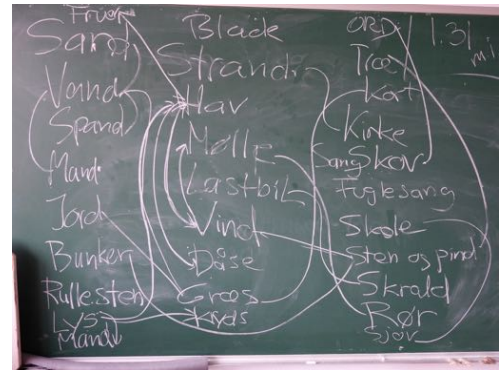 Fruer
Sand
Vand
Spand
Mand
Jord
Bunker
Rullesten
Lys
Mand
Black
Strand
Hav
Mølle
Lastbil
Vind
Dåse
Græs
Kryds
ORD
Træ
Kat
Kirke
Sang Skov
Fuglesang
Skole
Sten og pind
Skrald
Rør
Sjov
1.31
mi